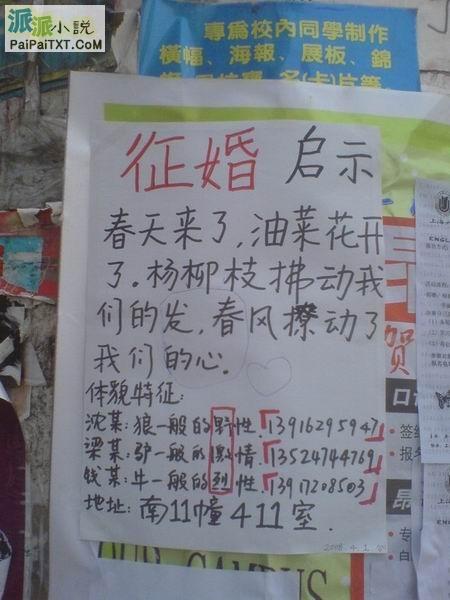 派派小说
PaiPaiTXT.Com
專為校內同學制作
橫幅、海報、展板、錦
征婚 启示
春天来了,油菜花开
了.杨柳枝拂动我
们的发,春风撩动了
我们的心.
体貌特征:
沈某:狼一般的野性.「13916295947」
梁某:驴一般的激情「13524744769」
钱某:牛一般的烈性「13917208503」
地址:南11幢411室.
2008.4.1
贺
OUR CAMPUS
ENGL